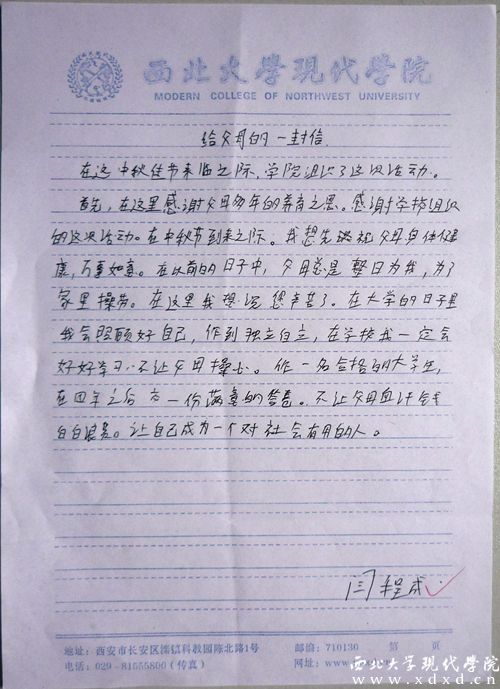 西北大學現代学院
MODERN COLLEGE OF NORTHWEST UNIVERSITY
给父母的一封信
在这中秋佳节来临之际,学院组织了这次活动。
首先,在这里感谢父母多年的养育之恩。感谢学校组织
的这次活动。在中秋节到来之际。我想先祝父母身体健
康,万事如意。在以前的日子中,父母总是整日为我,为了
家里操劳。在这里我想说您辛苦了。在大学的日子里
我会照顾好自己,作到独立自立,在学校我一定会
好好学习不让父母操心。作一名合格的大学生,
在四年之后交一份满意的答卷。不让父母血汗钱
白白浪费。让自己成为一个对社会有用的人。
闫程成
地址:西安市长安区滦镇科教园陈北路1号 邮编:710130 第 页
电话:029-81555800(传真) 网址:www.
西北大学现代学院
www.xdxd.cn